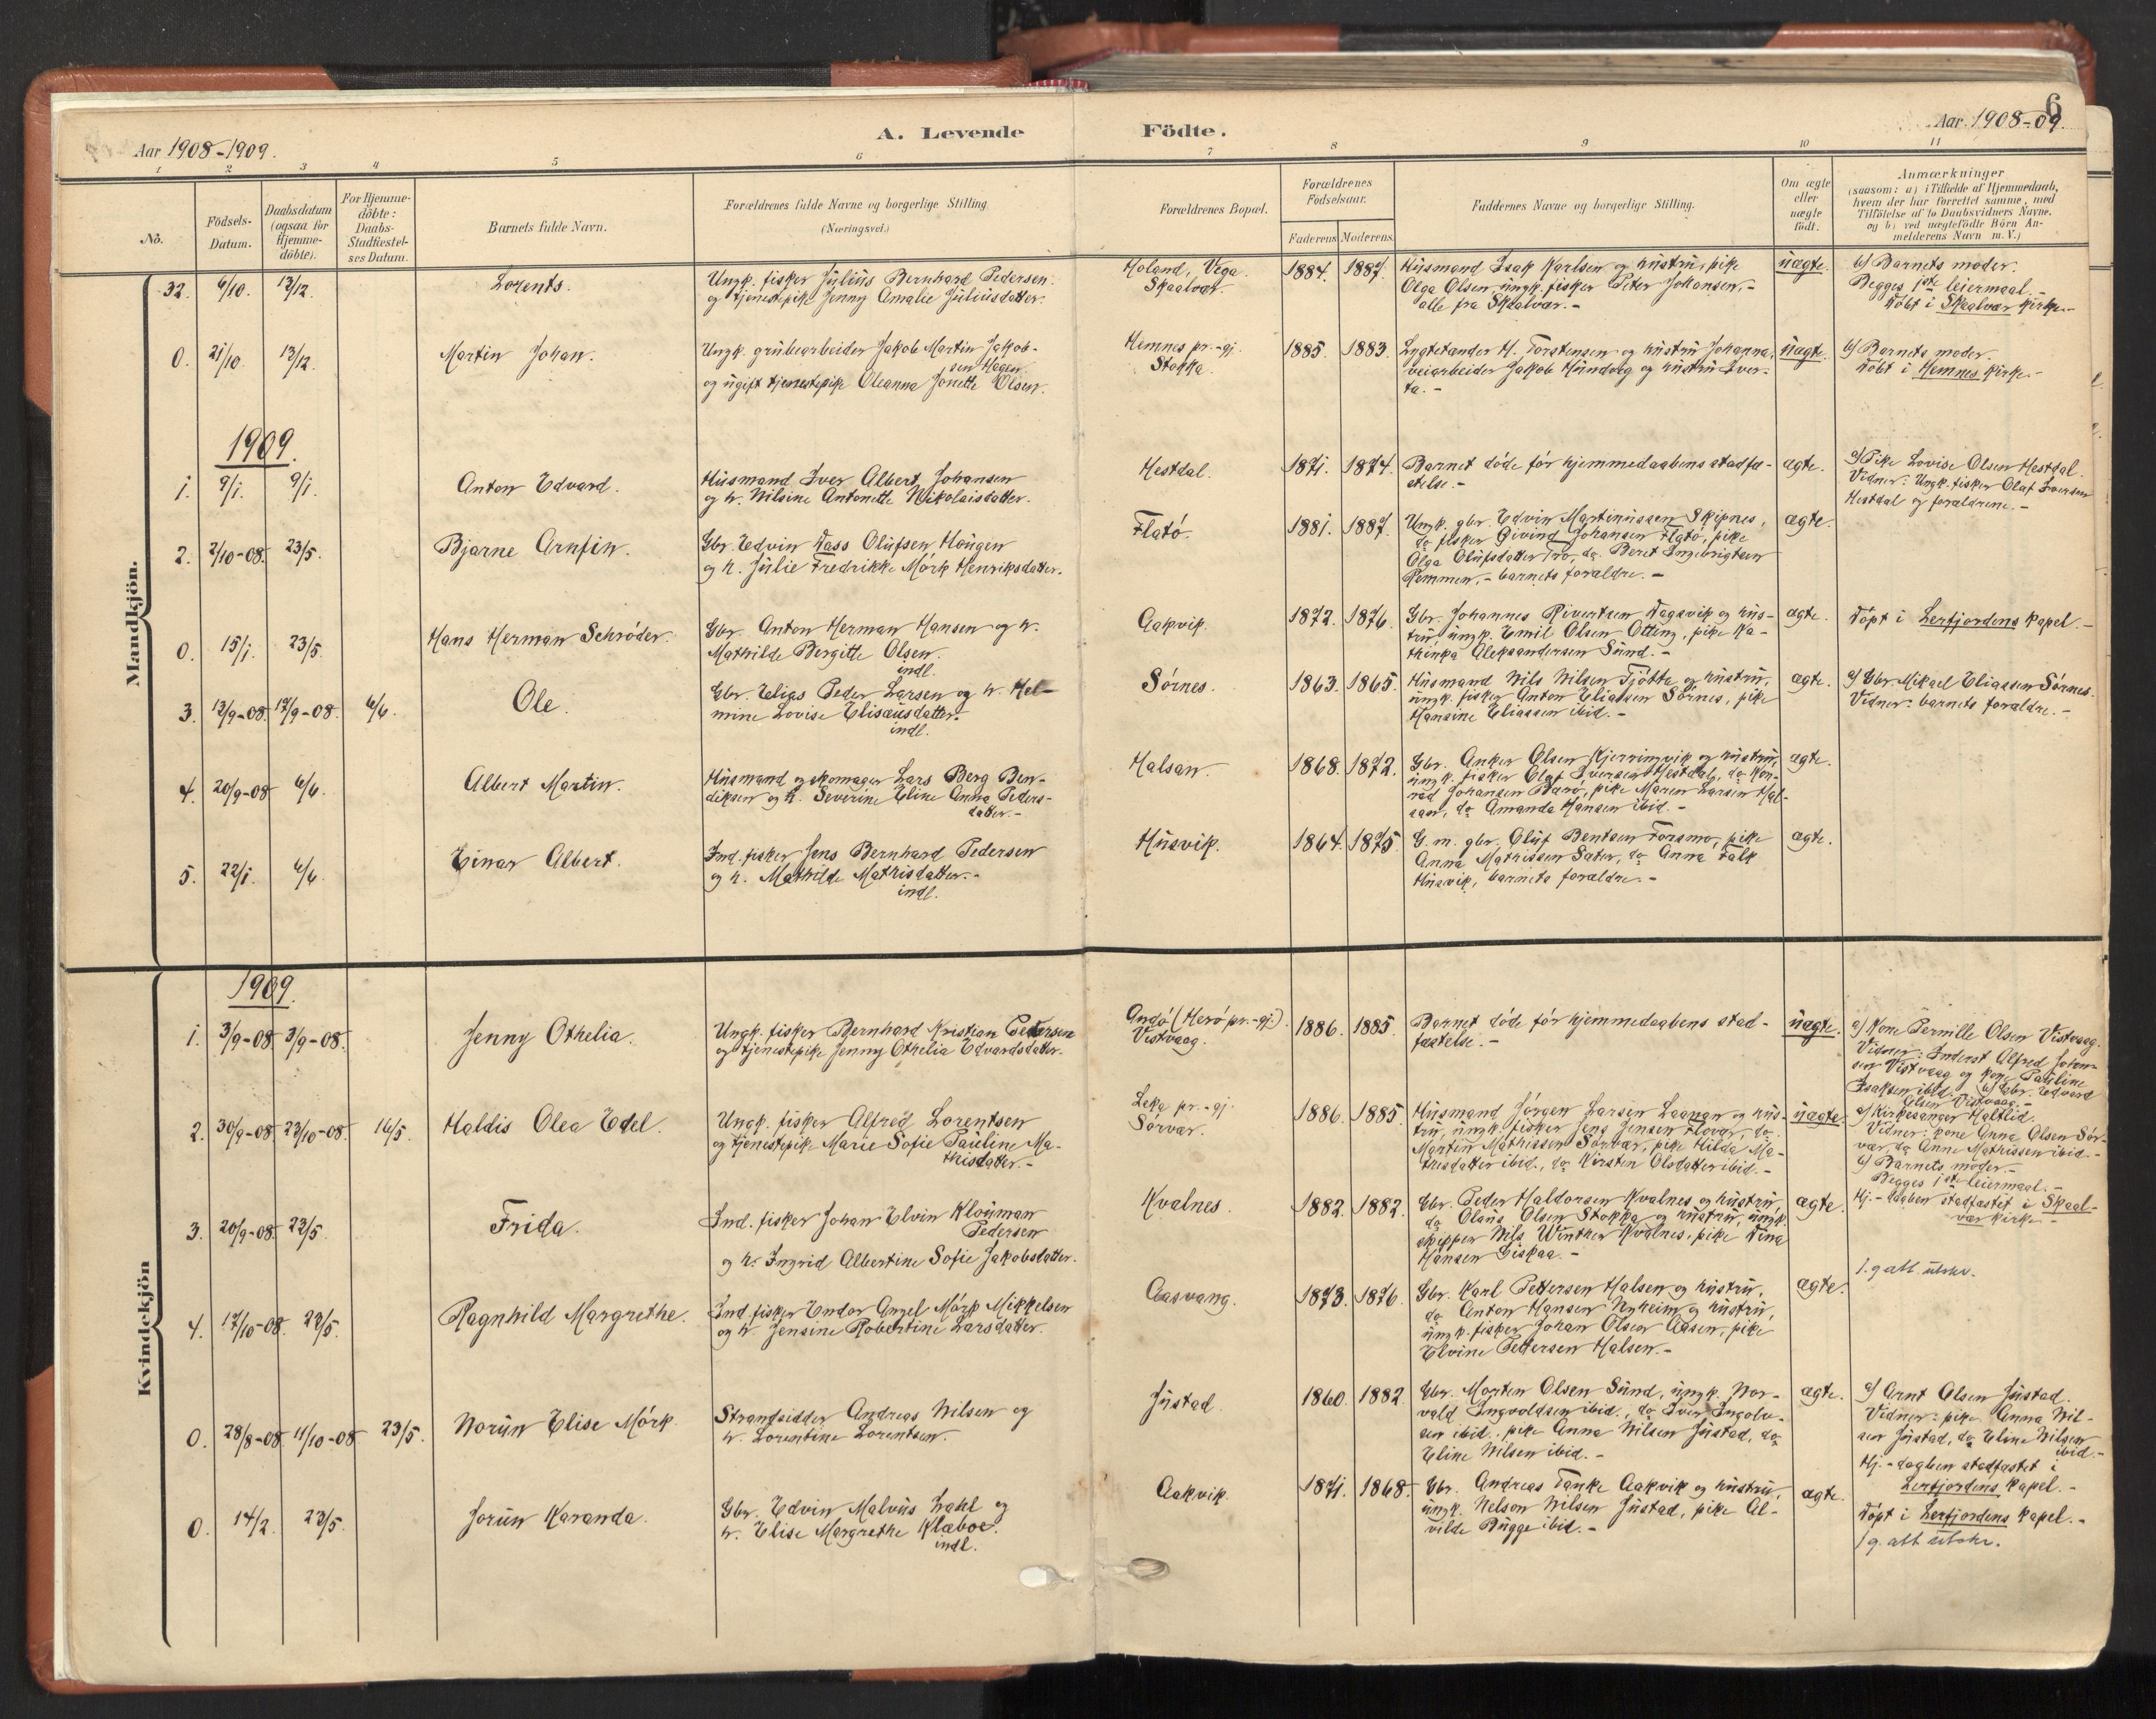 6
A. Levende Födte.
Aar 1908-1909.
Aar 1908-09.
1 2 3 4 5 6 7 8 9 10 11
No.
Födsels-
Datum.
Daabsdatum
(ogsaa for
Hjemme-
döbte).
For Hjemme-
döbte:
Daabs-
Stadfæstel-
ses Datum.
Barnets fulde Navn.
Forældrenes fulde Navne og borgerlige Stilling.
(Næringsvei.)
Forældrenes Bopæl.
Forældrenes
Födselsaar.
Faderens. Moderens.
Faddernes Navne og borgerlige Stilling.
Om ægte
eller
uægte
födt.
Anmærkninger
(saasom: a) i Tilfælde af Hjemmedaab,
hvem der har forrettet samme, med
Tilföielse af to Daabsvidners Navne,
og b) ved uægtefödte Börn An-
melderens Navn m. V.)
Mandkjön.
32. 6/10. 13/12. Lorents.
Ungk. fisker Julius Bernhard Pedersen
og tjenestepike Jenny Amalie Juliusdatter.
Holand, Vega.
Skaalvær.
1884. 1887.
Husmand Isak Karlsen og hustru, pike
Olga Olsen, ungk. fisker Peter Johansen, -
alle fra Skaalvær. -
uægte.
b) Barnets moder.
Begges 1ste leiermaal. -
Döbt i Skaalvær kirke. -
0. 21/10. 13/12. Martin Johan.
Ungk. grubearbeider Jakob Martin Jakob-
sen Hagen
og ugift tjenestepike Oleanna Jonette Olsen.
Hemnes pr.-gj.
Stokka.
1885. 1883.
Lygtetænder H. Torstensen og hustru Johanna,
veiarbeider Jakob Hundveg og hustru Iver-
ta. -
uægte.
b) Barnets moder.
Döbt i Hemnes kirke. -
1909.
1. 9/1. 9/1. Anton Edvard.
Husmand Iver Albert Johansen
og h. Nilsine Antonette Nikolaisdatter.
Hestdal.
1871. 1874.
Barnet döde för hjemmedaabens stadfæ-
stelse. -
ægte.
a) Pike Lovise Olsen Hestdal.
Vidner: Ungk. fisker Olaf Iversen
Hestdal og forældrene. -
2. 2/10-08. 23/5. Bjarne Arnfin.
Gbr. Edvin Dass Olufsen Haugen
og h. Julie Fredrikke Mörk Henriksdatter.
Flatö.
1881. 1887.
Ungk. gbr. Edvin Martinussen Skipnes,
do fisker Öivind Johansen Flatö, pike
Olga Olufsdatter Tro, do Beret Ingebrigtsen
Remmen, - barnets forældre. -
ægte.
0. 15/1. 23/5. Hans Herman Schröder.
Gbr. Anton Herman Hansen og h.
Mathilde Bergitte Olsen.
indl.
Aakvik.
1872. 1876.
Gbr. Johannes Rivertsen Dagsvik og hus-
tru, ungk. Emil Olsen Otting, pike Ka-
thinka Aleksandersen Sund. -
ægte.
Döpt i Lerfjordens kapel. -
3. 13/9-08. 17/9-08. 6/6. Ole.
Gbr. Elias Peder Larsen og h. Hel-
mine Lovise Elisæusdatter.
indl.
Sörnes.
1863. 1865.
Husmand Nils Nilsen Tjötta og hustru,
ungk. fisker Anton Eliassen Sörnes, pike
Hansine Eliassen ibid. -
ægte.
a) Gbr. Mikael Eliassen Sörnes.
Vidner: barnets forældre. -
4. 20/9-08 6/6. Albert Martin.
Husmand og skomager Lars Berg Ben-
diksen og h. Severine Eline Anna Peders-
datter. -
Halsan.
1868. 1872.
Gbr. Anker Olsen Kjerringvik og hustru,
ungk. fisker Olaf Iversen Hestdal, do Kon-
rad Johansen Barö, pike Maren Larsen Hal-
san, do Amanda Hansen ibid. -
ægte.
5. 22/1. 6/6. Einar Albert.
Ind. fisker Jens Bernhard Pedersen
og h. Mathilde Mathisdatter. -
indl.
Husvik.
1864. 1875.
G. m. gbr. Oluf Bentsen Forsmo, pike
Anna Mathissen Sæter, do Anna Falk
Husvik, barnets forældre. -
ægte.
Kvindekjön
1909.
1. 3/9-08. 3/9-08. Jenny Othelia.
Ungk. fisker Bernhard Kristian Pedersen
og tjenestepike Jenny Othelia Edvardsdatter.
Andö (Herö pr.-gj.)
Vistvaag.
1886. 1885.
Barnet döde för hjemmedaabens stad-
fæstelse. -
uægte.
a) Kone Pernille Olsen Vistvaag.
Vidner: Inderst Alfred Johan-
sen Vistvaag og kone Pauline
Isaksen ibid. b) Gbr. Edvard
Olsen Vistvaag. -
2. 30/9-08. 23/10-08. 16/5. Haldis Olea Edel.
Ungk. fisker Alfred Lorentsen
og tjenestepike Marie Sofie Pauline Ma-
thisdatter. -
Leka pr.-gj.
Sörvær.
1886. 1885.
Husmand Jörgen Larsen Laanan og hus-
tru, ungk. fisker Jens Jensen Flovær, do
Martin Mathissen Sörvær, pike Hilda Ma-
thisdatter ibid., do Kirsten Olsdatter ibid. -
uægte.
a) Kirkesanger Haltlid.
Vidner: kone Anna Olsen Sör-
vær, do Anne Mathissen ibid. -
b) Barnets moder. -
Begges 1ste leiermaal. -
Hj.-daaben stadfæstet i Skaal-
vær kirke -
3. 20/9-08. 23/5. Frida.
Ind. fisker Johan Elvin Klouman
Pedersen
og h. Ingrid Albertine Sofie Jakobsdatter.
Kvalnes.
1882. 1882.
Gbr. Peder Haldorsen Kvalnes og hustru,
do Olaus Olsen Stokka og hustru, ungk.
skipper Nils Winther Kvalnes, pike Dina
Hansen Giskaa. -
ægte.
1 g. att. utskr.
4. 17/10-08. 23/5. Ragnhild Margrethe.
Ind. fisker Endor Angel Mörk Mikkelsen
og h. Jensine Robertine Larsdatter.
Aasvang.
1873. 1876.
Gbr. Karl Pettersen Halsen og hustru,
do Anton Hansen Nyheim og hustru,
ungk. fisker Johan Olsen Aasen, pike
Elvine Pettersen Halsen. -
ægte.
0. 28/8-08 11/10-08 23/5. Norun Elise Mörk.
Strandsidder Andreas Nilsen og
h. Lorentine Lorentsen.
Justad.
1860. 1882.
Gbr. Morten Olsen Sund, ungk. Nor-
vald Ingvoldsen ibid., do Iver Ingolv-
sen ibid., pike Anna Nilsen Justad, do
Eline Nilsen ibid. -
ægte.
a) Arnt Olsen Justad.
Vidner: pike Anna Nil-
sen Justad, do Eline Nilsen
ibid. -
Hj.-daaben stadfæstet i
Lerfjordens kapel. -
0. 14/2. 23/5. Jorun Karanda.
Gbr. Edvin Malvus Zahl og
h. Elise Margrethe Klæboe.
indl.
Aakvik.
1871. 1868.
Gbr. Andreas Tanke Aakvik og hustru,
ungk. Nelson Nilsen Justad, pike Al-
vilde Bugge ibid. -
ægte.
Döpt i Lerfjordens kapel. -
1 g. att utskr.